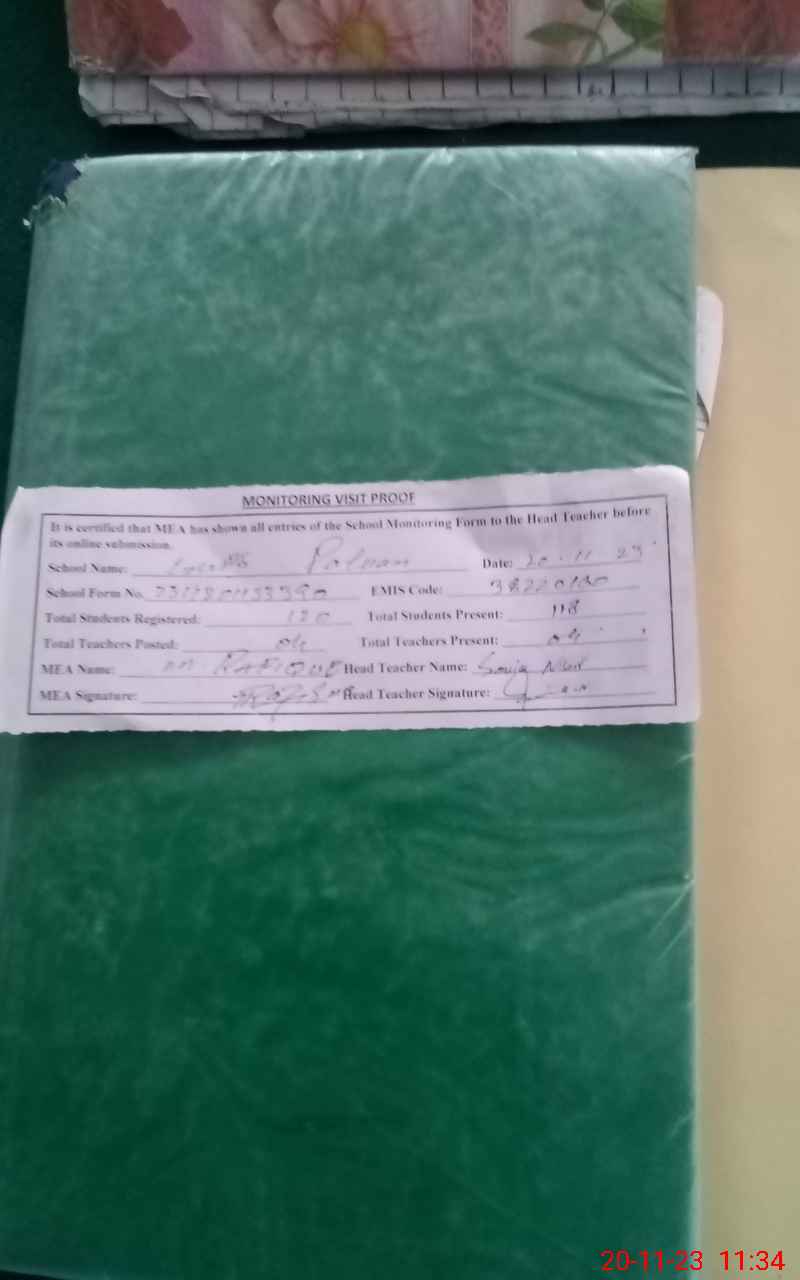 MONITORING VISIT PROOF
It is certified that MEA has shown all entries of the School Monitoring Form to the Head Teacher before
its online submission.
School Name: Date: 20-11-23
School Form No. EMIS Code:
Total Students Registered: 120 Total Students Present: 118
Total Teachers Posted: 04 Total Teachers Present: 04
MEA Name: RAFIQUE Head Teacher Name:
MEA Signature: Head Teacher Signature:
20-11-23 11:34